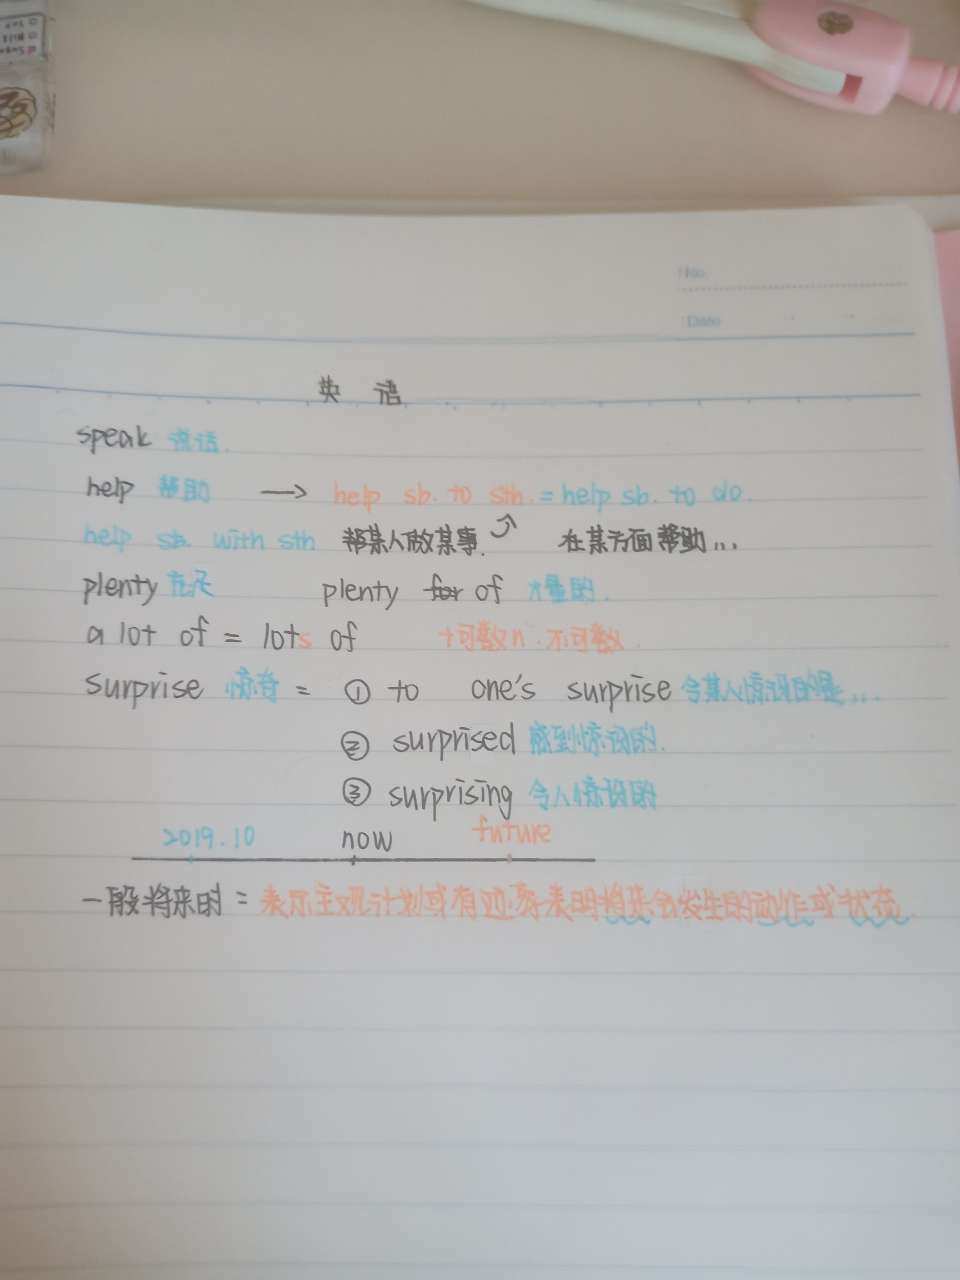 No.
Date
英 语
speak 说话.
help 帮助 → help sb. to sth. = help sb. to do.
help sb. with sth 帮某人做某事. 在某方面帮助...
plenty 充足 plenty for of 大量的.
a lot of = lots of +可数n.不可数.
surprise 惊奇 = ① to one's surprise 令某人惊讶的是...
② surprised 感到惊讶的.
③ surprising 令人惊讶的
2019.10 now future
一般将来时: 表示主观计划或有迹象表明将来会发生的动作或状态.